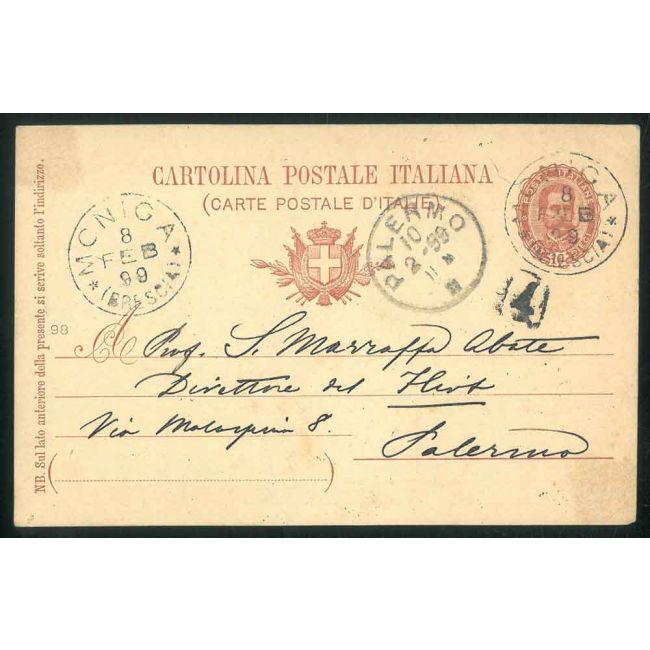 CARTOLINA POSTALE ITALIANA
(CARTE POSTALE D'ITALIE)
MONIGA
8
FEB
99
(BRESCIA)
PALERMO
10
2-99
POSTE ITALIANE
MONIGA
8
FEB
99
(BRESCIA)
4
98
A
Prof. S. Marraffa Abate
Direttore del Flirt
Via Malaspina 8.
Palermo
NB. Sul lato anteriore della presente si scrive soltanto l'indirizzo.